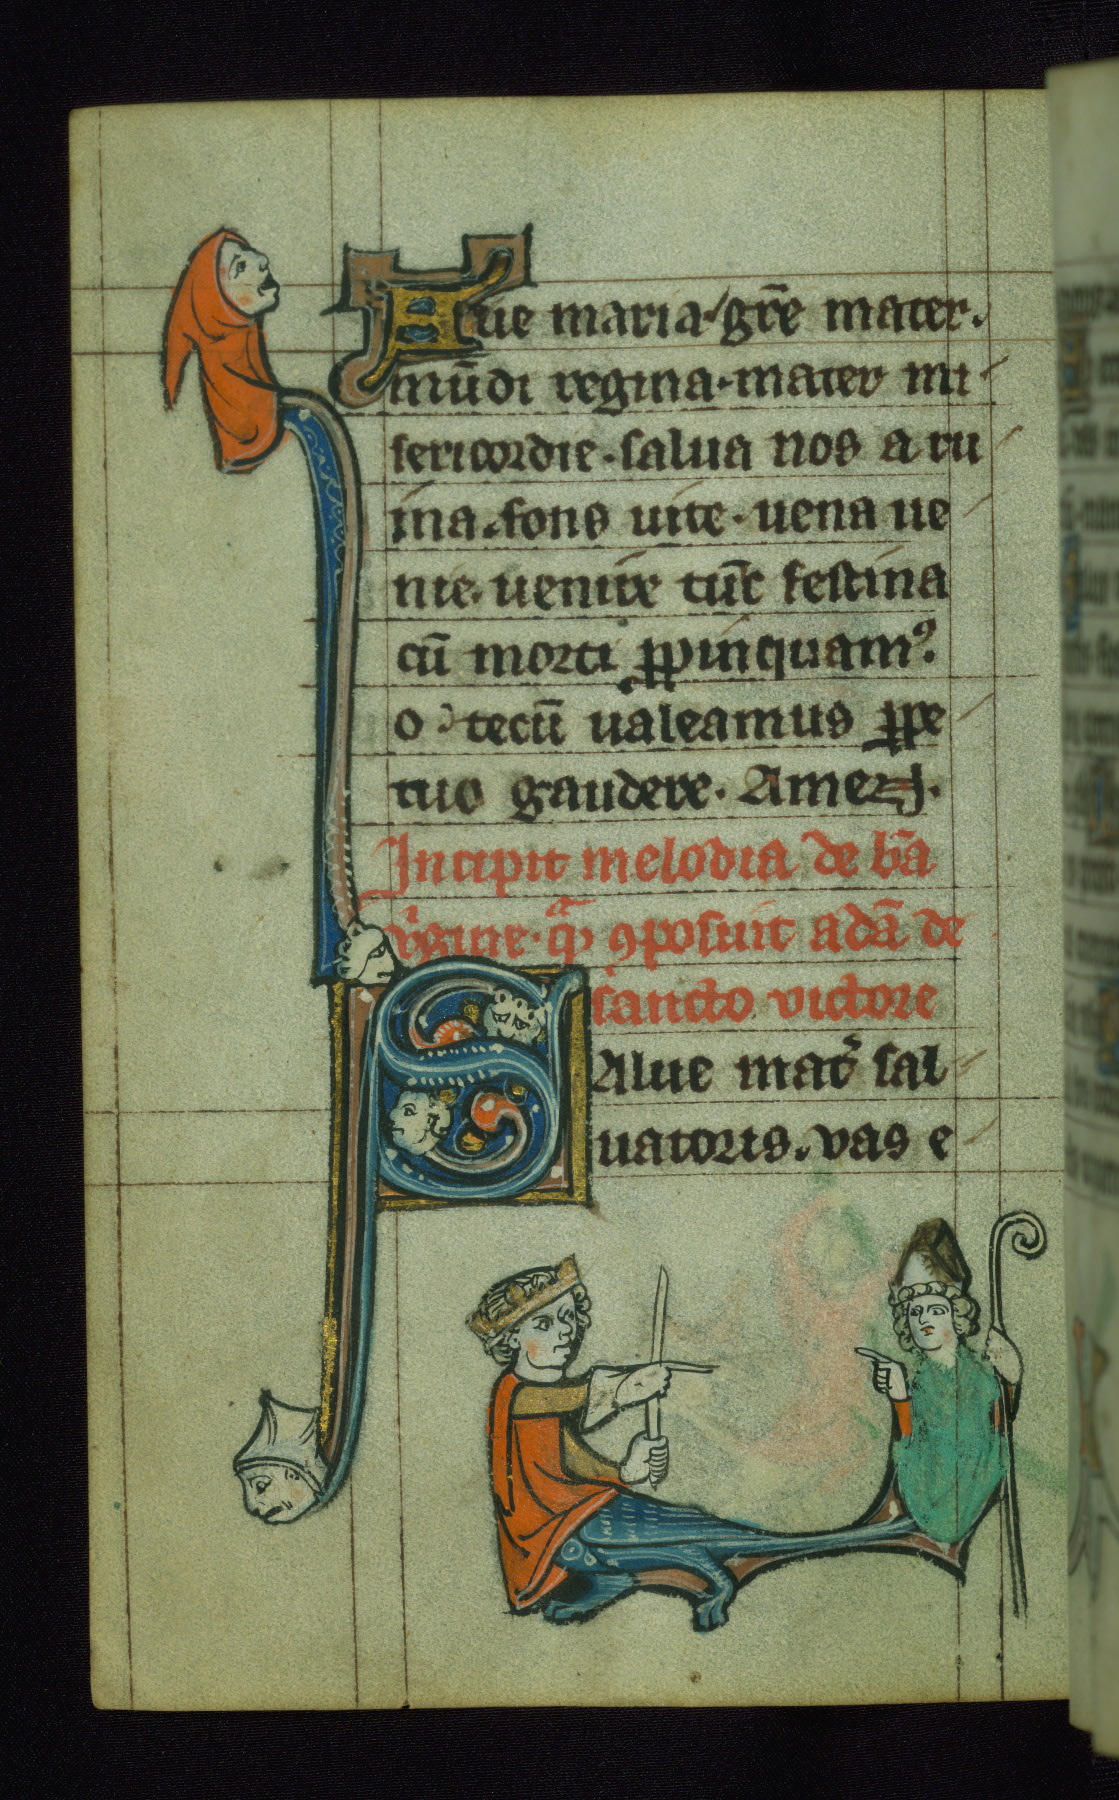 Aue maria·gr̄e mater.
mūdi regina·mater mi
sericordie·salua nos a ru
ina·fons uite·uena ue
nie·uenire tūc festina
cū morti ꝓpinquamꝰ.
o tecū ualeamus ꝑpe
tuo gaudere. Amen.
Incipit melodia de bā
v̓gine·qᵃ̄ ꝯposuit adā de
sancto victore
SAlue mat̓ sal
uatoris·vas e